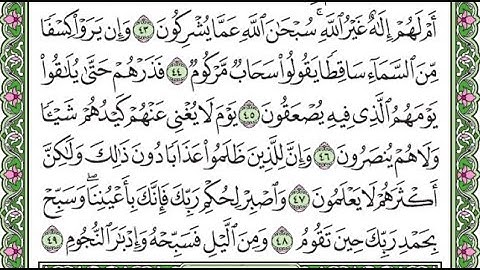 أَمْ لَهُمْ إِلَٰهٌ غَيْرُ ٱللَّهِ ۚ سُبْحَٰنَ ٱللَّهِ عَمَّا يُشْرِكُونَ ٤٣ وَإِن يَرَوْا۟ كِسْفًا
مِّنَ ٱلسَّمَآءِ سَاقِطًا يَقُولُوا۟ سَحَابٌ مَّرْكُومٌ ٤٤ فَذَرْهُمْ حَتَّىٰ يُلَٰقُوا۟
يَوْمَهُمُ ٱلَّذِى فِيهِ يُصْعَقُونَ ٤٥ يَوْمَ لَا يُغْنِى عَنْهُمْ كَيْدُهُمْ شَيْـًٔا
وَلَا هُمْ يُنصَرُونَ ٤٦ وَإِنَّ لِلَّذِينَ ظَلَمُوا۟ عَذَابًا دُونَ ذَٰلِكَ وَلَٰكِنَّ
أَكْثَرَهُمْ لَا يَعْلَمُونَ ٤٧ وَٱصْبِرْ لِحُكْمِ رَبِّكَ فَإِنَّكَ بِأَعْيُنِنَا ۖ وَسَبِّحْ
بِحَمْدِ رَبِّكَ حِينَ تَقُومُ ٤٨ وَمِنَ ٱلَّيْلِ فَسَبِّحْهُ وَإِدْبَٰرَ ٱلنُّجُومِ ٤٩